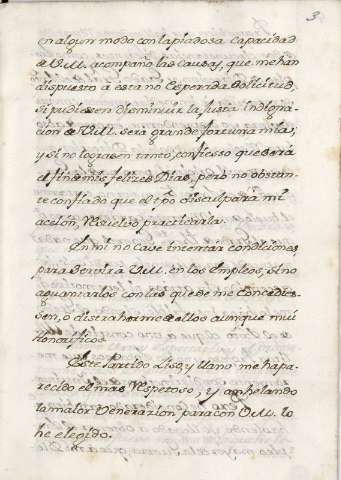 3
en algun modo con la piadosa capacidad
de V.M. acompaño las Causas, que me han
dispuesto a esta no esperada solicitud.
si pudiesen disminuir la justa Indigna-
cion de V.M. será grande fortuna mia;
y si no lograse tanto, confieso que será
el fin de mis felizes Dias, pero no obstan-
te confiado que el tpõ disculpará mi
accion, Resuelvo practicarla.
En mi no cave intentar condiciones,
para servir a V.M. en los Empleos, sino
aguantarlos con las que se me concedies-
sen, o distraherme de ellos aunque mui
honorificos.
Este Partido Liso, y llano me ha pa-
recido el mas Respetoso, y anhelando
la maior Veneracion para con V.M. lo
he elegido.